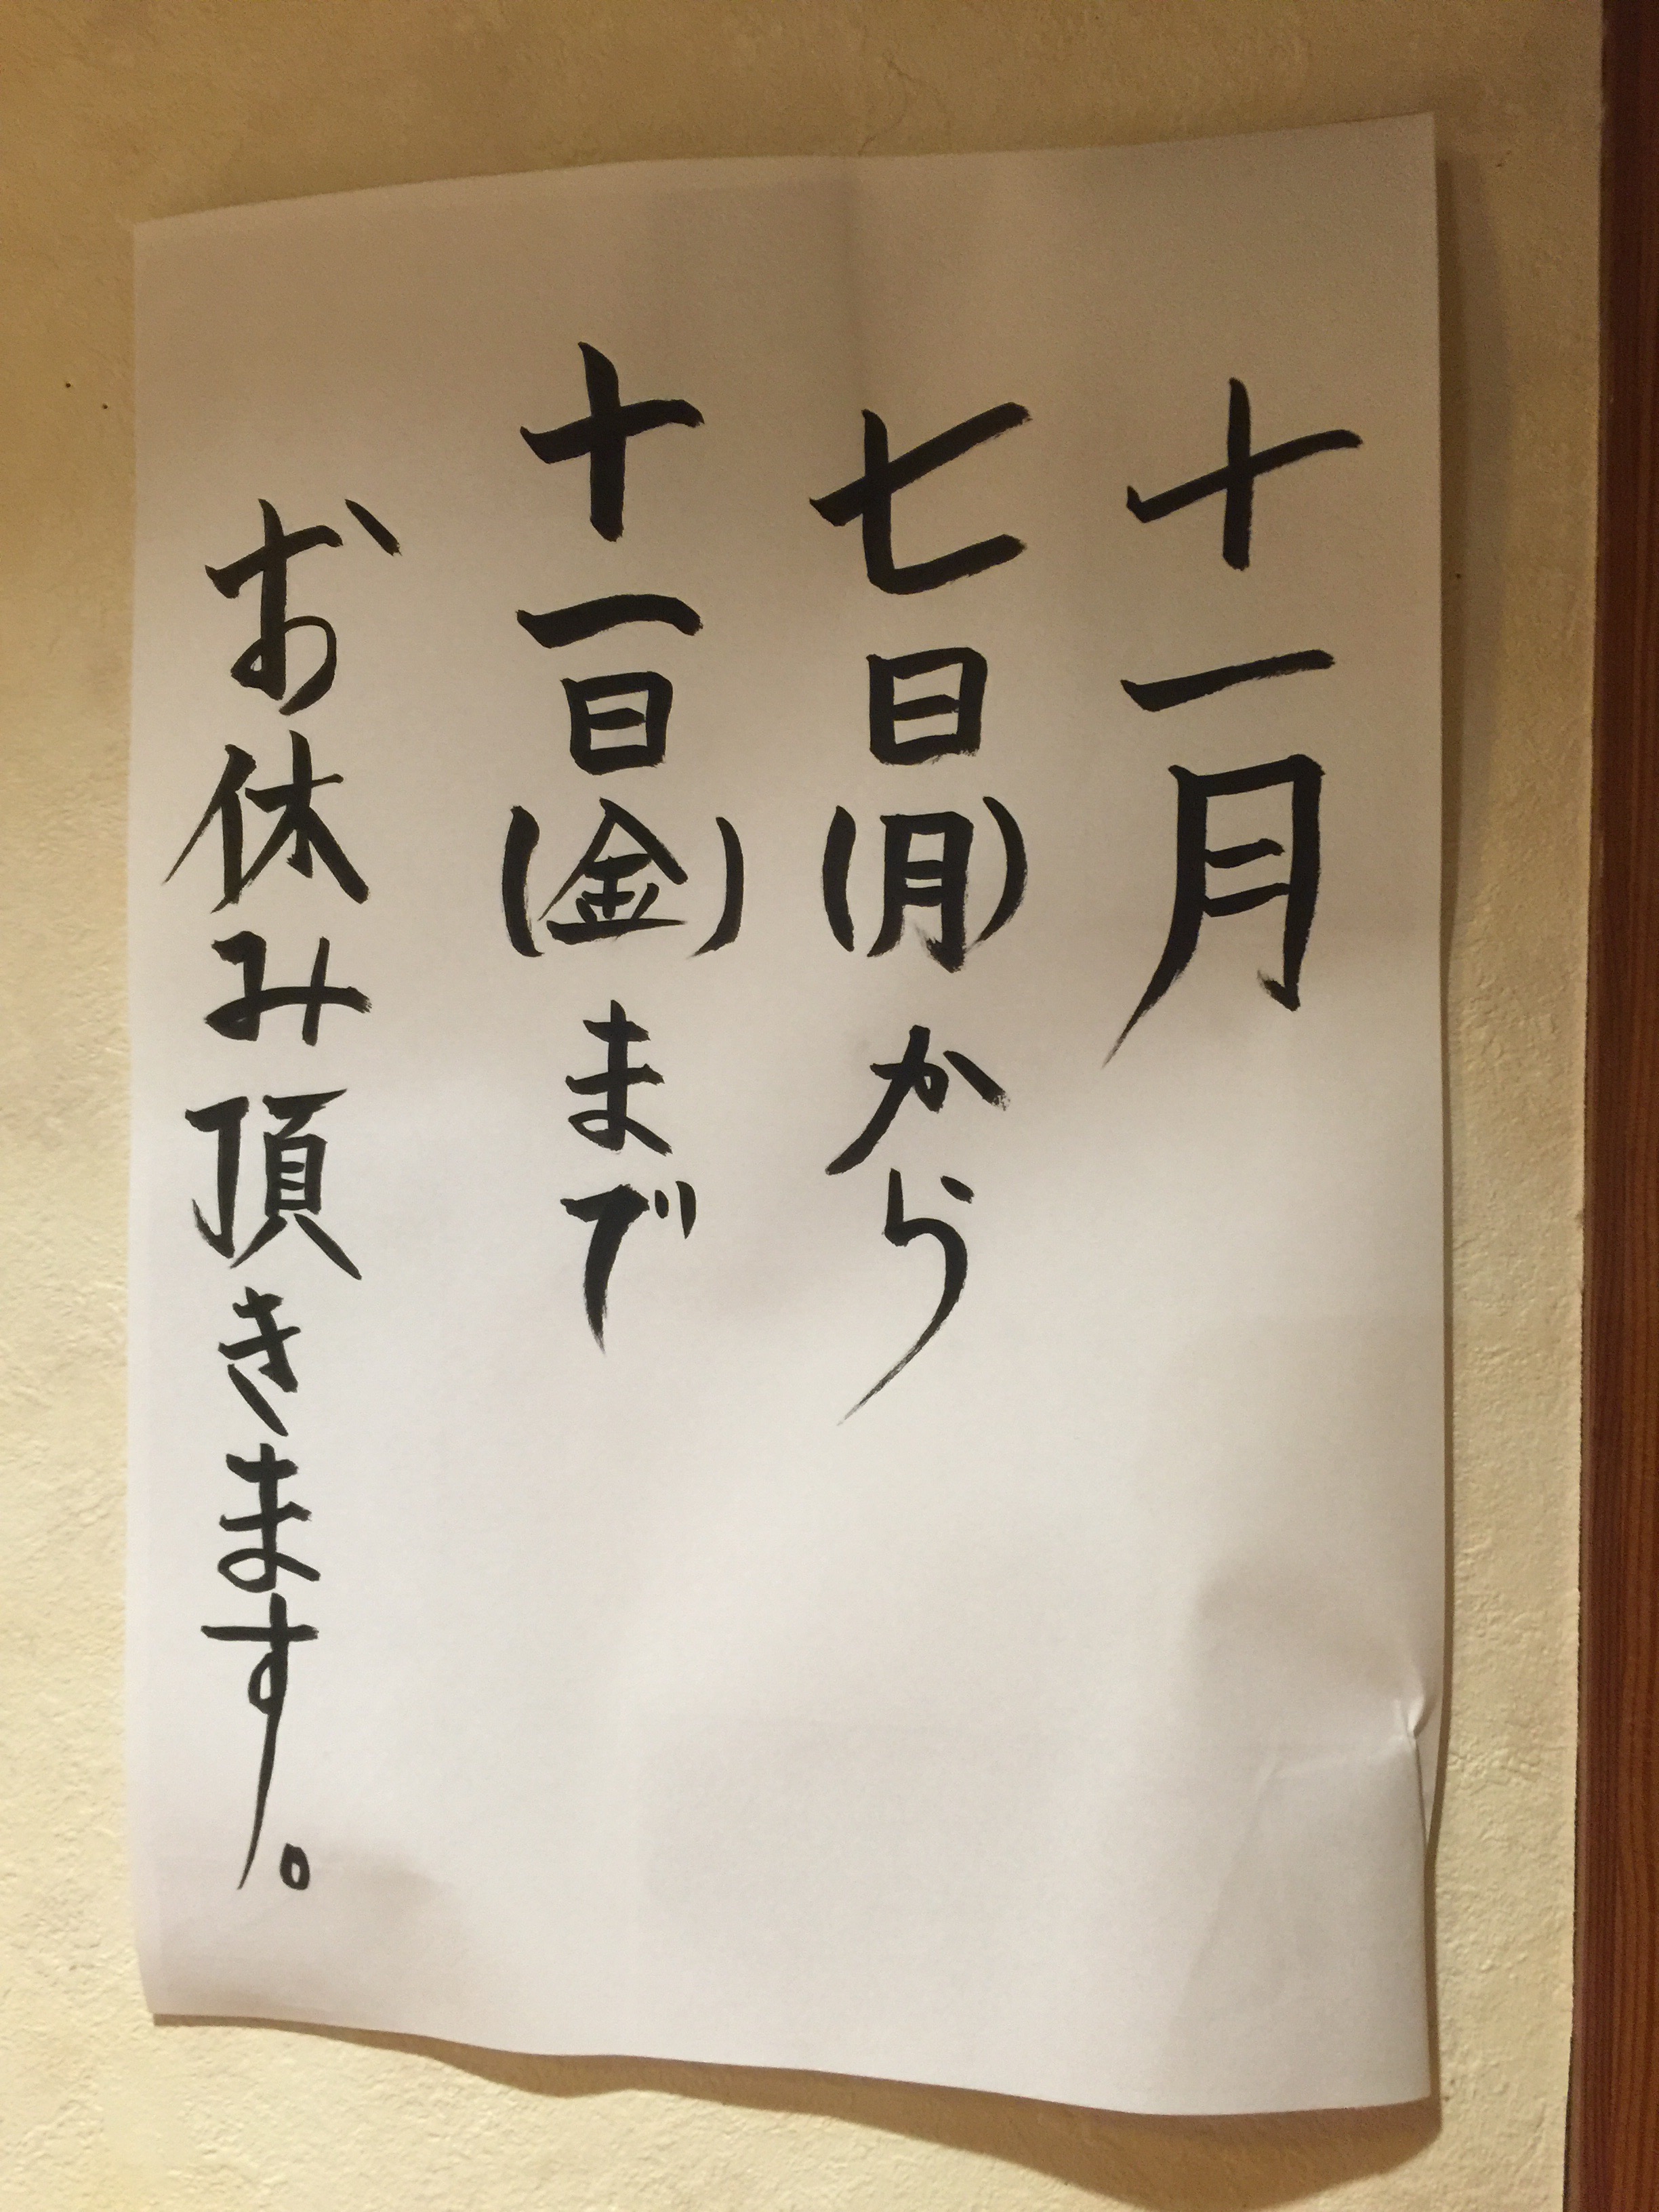 十一月
七日(月)から
十一日(金)まで
お休み頂きます。